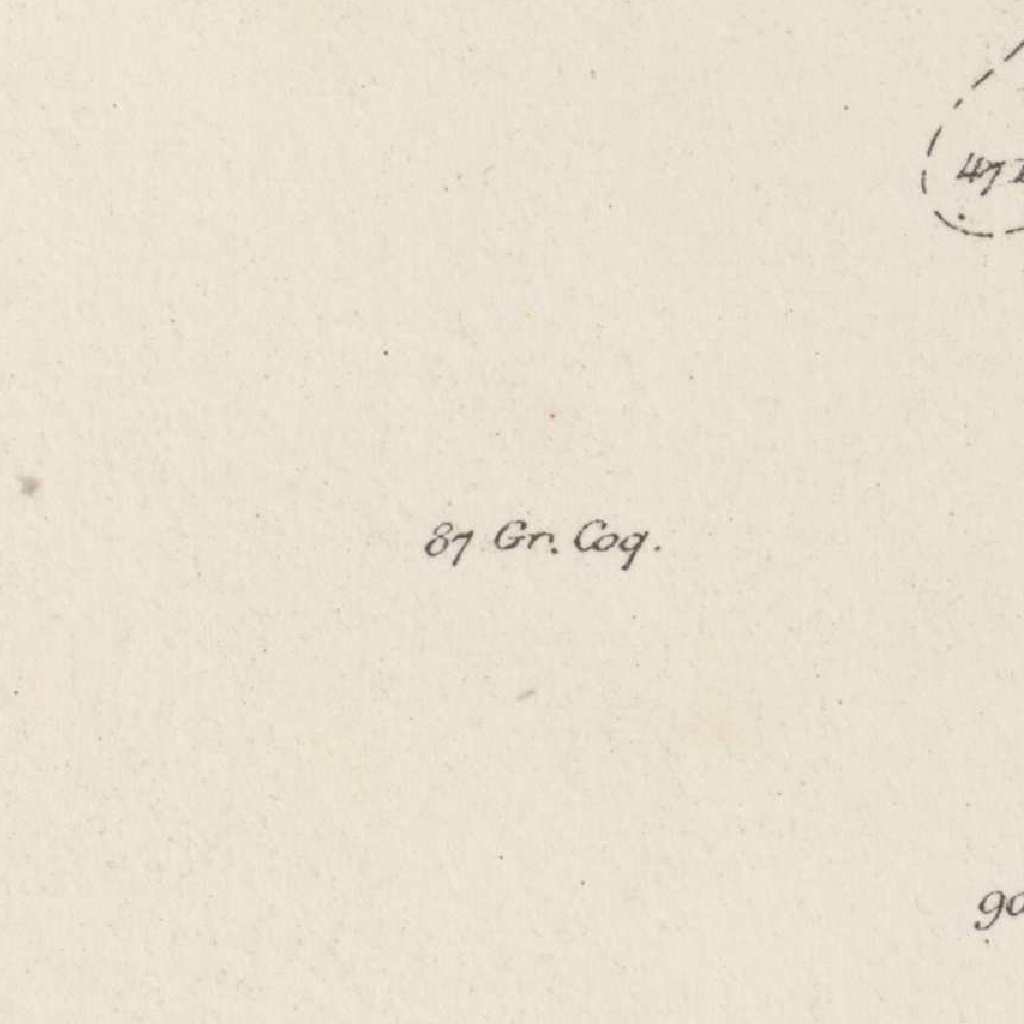 47
87 Gr. Coq.
90